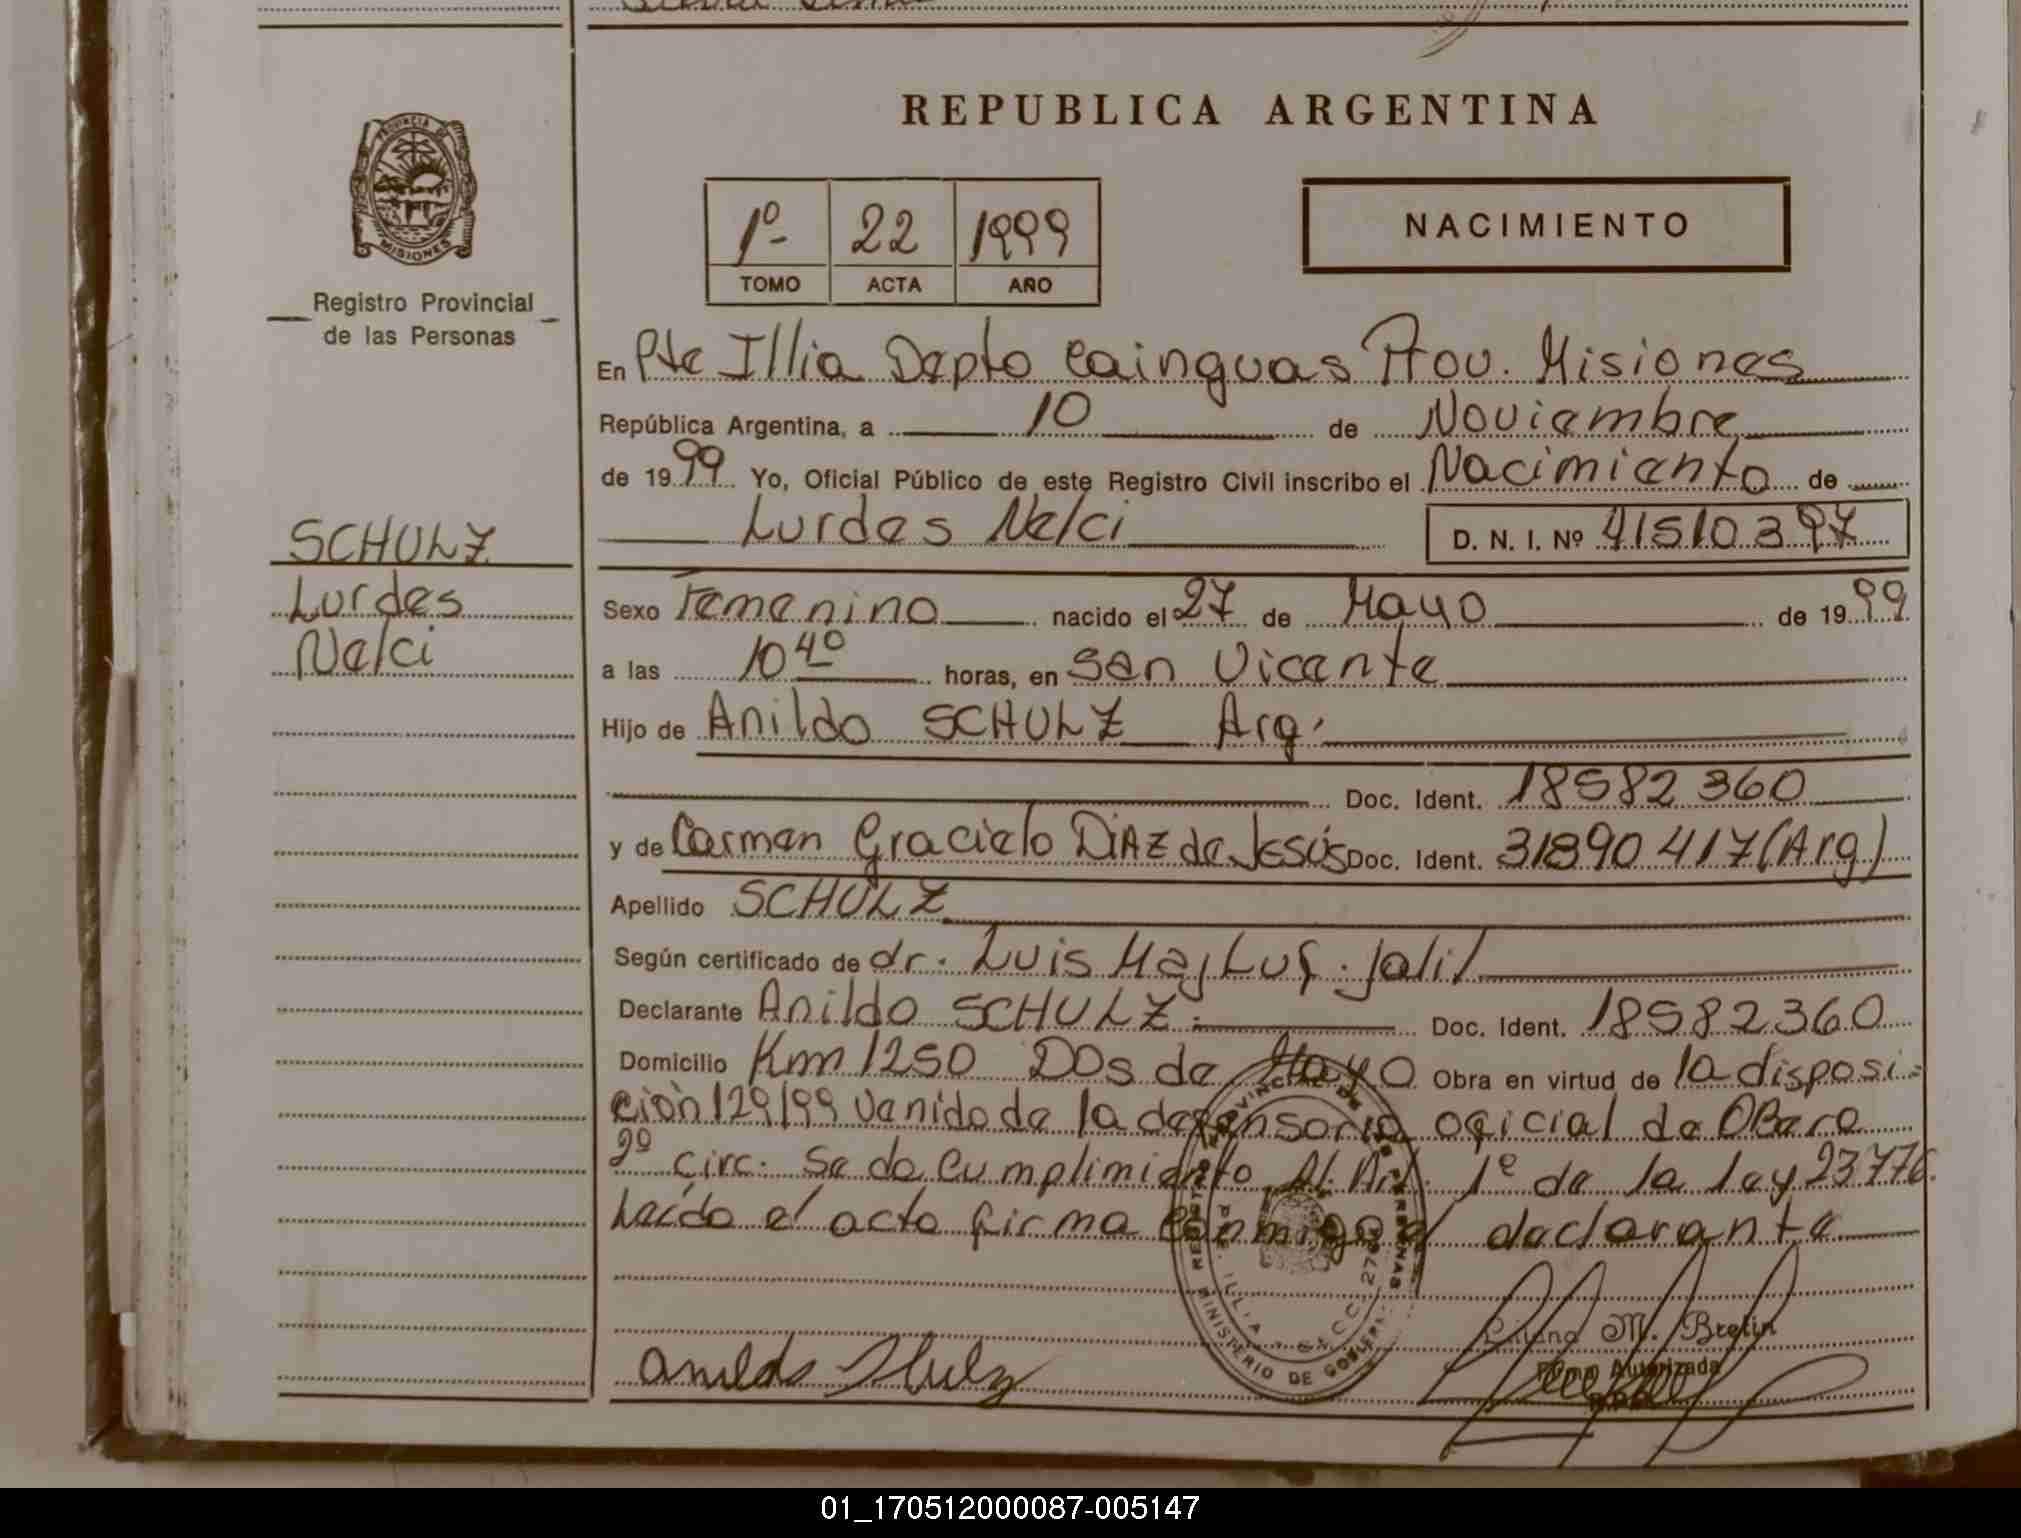 REPUBLICA ARGENTINA
PROVINCIA DE
MISIONES
Registro Provincial
de las Personas
1º
22
1999
TOMO
ACTA
AÑO
NACIMIENTO
En Pte Illia Depto Cainguas Prov. Misiones
República Argentina, a 10 de Noviembre
de 1999 Yo, Oficial Público de este Registro Civil inscribo el Nacimiento de
Lurdes Nelci D. N. I. Nº 41510397
SCHULZ
Lurdes
Nelci
Sexo Femenino nacido el 27 de Mayo de 1999
a las 10 40 horas, en San Vicente
Hijo de Anildo SCHULZ Arg.
Doc. Ident. 18582360
y de Carmen Graciela DIAZ de Jesús Doc. Ident. 31890417 (Arg)
Apellido SCHULZ
Según certificado de dr. Luis Majluf. jalil
Declarante Anildo SCHULZ. Doc. Ident. 18582360
Domicilio Km 1250 DOs de Mayo Obra en virtud de la disposi-
ción 129/99 venido de la defensoria oficial de OBera
2º circ. Se da Cumplimiento Al Art. 1º de la ley 23776.
Leído el acta firma conmigo el declarante
REGISTRO PROVINCIAL DE LAS PERSONAS
MINISTERIO DE GOBIERNO
ILLIA
Anildo Shulz
M. Brelin
Firma Autorizada
01_170512000087-005147